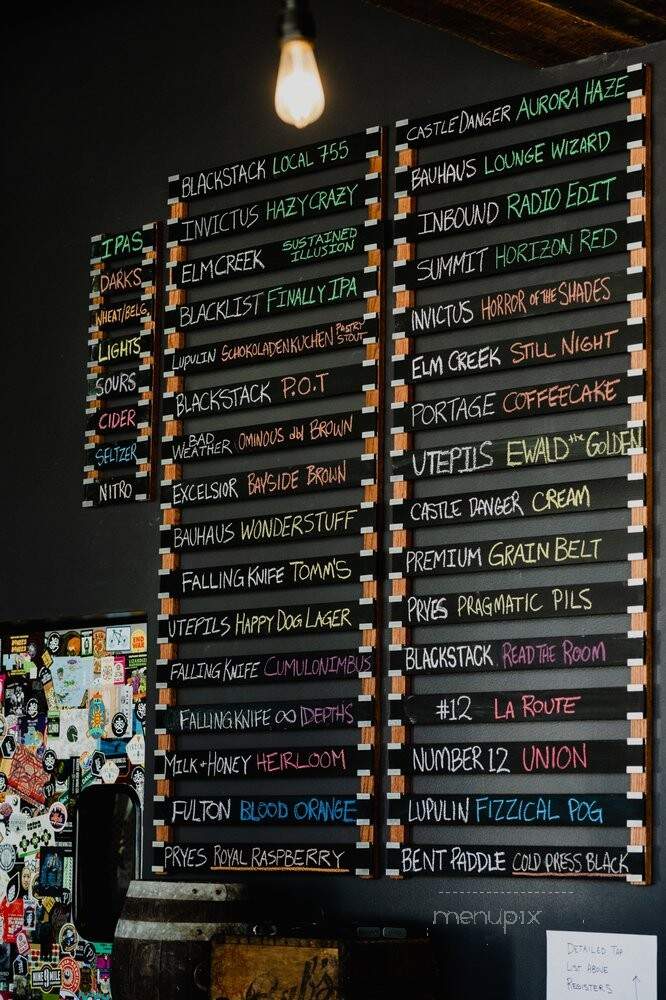 IPAS
DARKS
WHEAT/BELG
LIGHTS
SOURS
CIDER
SELTZER
NITRO
BLACKSTACK LOCAL 755
INVICTUS HAZY CRAZY
ELM CREEK SUSTAINED
ILLUSION
BLACKLIST FINALLY IPA
LUPULIN SCHOKOLADENKUCHEN PASTRY
STOUT
BLACKSTACK P.O.T
BAD
WEATHER OMINOUS dbl BROWN
EXCELSIOR BAYSIDE BROWN
BAUHAUS WONDERSTUFF
FALLING KNIFE TOMM'S
UTEPILS HAPPY DOG LAGER
FALLING KNIFE CUMULONIMBUS
FALLING KNIFE ∞ DEPTHS
MILK + HONEY HEIRLOOM
FULTON BLOOD ORANGE
PRYES ROYAL RASPBERRY
CASTLE DANGER AURORA HAZE
BAUHAUS LOUNGE WIZARD
INBOUND RADIO EDIT
SUMMIT HORIZON RED
INVICTUS HORROR OF THE SHADES
ELM CREEK STILL NIGHT
PORTAGE COFFEECAKE
UTEPILS EWALD the GOLDEN
CASTLE DANGER CREAM
PREMIUM GRAIN BELT
PRYES PRAGMATIC PILS
BLACKSTACK READ THE ROOM
#12 LA ROUTE
NUMBER 12 UNION
LUPULIN FIZZICAL POG
BENT PADDLE COLD PRESS BLACK
menupix
DETAILED TAP
LIST ABOVE
REGISTERS
NINE MILE